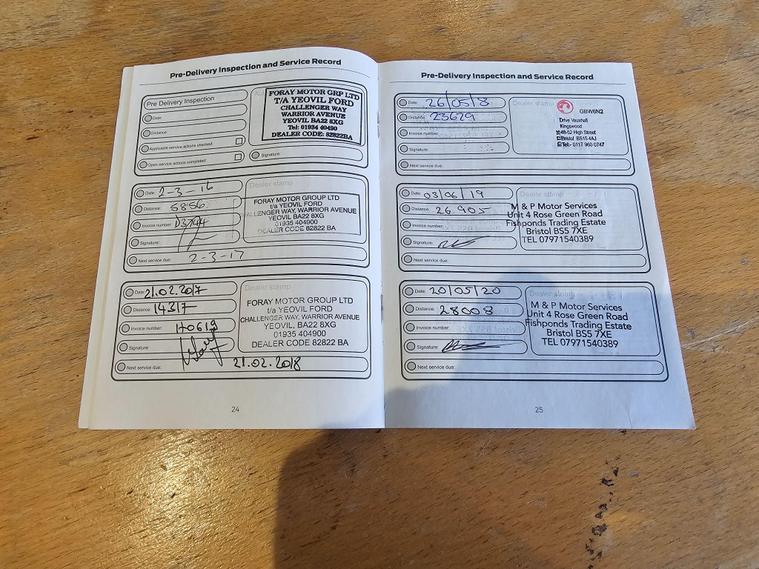 Pre-Delivery Inspection and Service Record
Pre Delivery Inspection
Date:
Distance:
Applicable service actions checked:
Open service actions completed:
FORAY MOTOR GRP LTD
T/A YEOVIL FORD
CHALLENGER WAY
WARRIOR AVENUE
YEOVIL BA22 8XG
Tel: 01934 40490
DEALER CODE: 82822BA
Signature:
Date: 2-3-16
Distance: 5856
Invoice number:
Signature:
Next service due: 2-3-17
Dealer stamp
FORAY MOTOR GROUP LTD
t/a YEOVIL FORD
CHALLENGER WAY, WARRIOR AVENUE
YEOVIL BA22 8XG
01935 404900
DEALER CODE 82822 BA
Date: 21.02.2017
Distance: 14317
Invoice number: 170613
Signature:
Next service due: 21.02.2018
Dealer stamp
FORAY MOTOR GROUP LTD
t/a YEOVIL FORD
CHALLENGER WAY, WARRIOR AVENUE
YEOVIL, BA22 8XG
01935 404900
DEALER CODE 82822 BA
24
Pre-Delivery Inspection and Service Record
Date: 26/05/8
Distance: 23629
Invoice number:
Signature:
Next service due:
Dealer stamp
GBW6N2
Drive Vauxhall
Kingswood
48-52 High Street
Bristol BS15 4AJ
Tel: 0117 960 0747
Date: 03/06/19
Distance: 26905
Invoice number:
Signature:
Next service due:
M & P Motor Services
Unit 4 Rose Green Road
Fishponds Trading Estate
Bristol BS5 7XE
TEL 07971540389
Date: 20/05/20
Distance: 28008
Invoice number:
Signature:
Next service due:
M & P Motor Services
Unit 4 Rose Green Road
Fishponds Trading Estate
Bristol BS5 7XE
TEL 07971540389
25